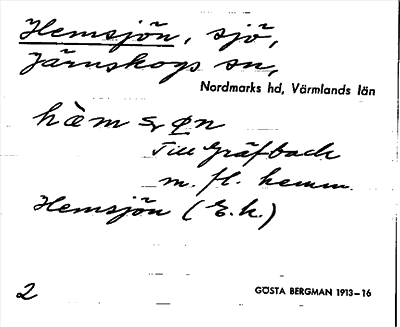 Hemsjön, sjö,
Järnskogs sn,
Nordmarks hd, Värmlands län
Till Gräfback
m. fl. hemm.
Hemsjön (E.k.)
2 GÖSTA BERGMAN 1913–16